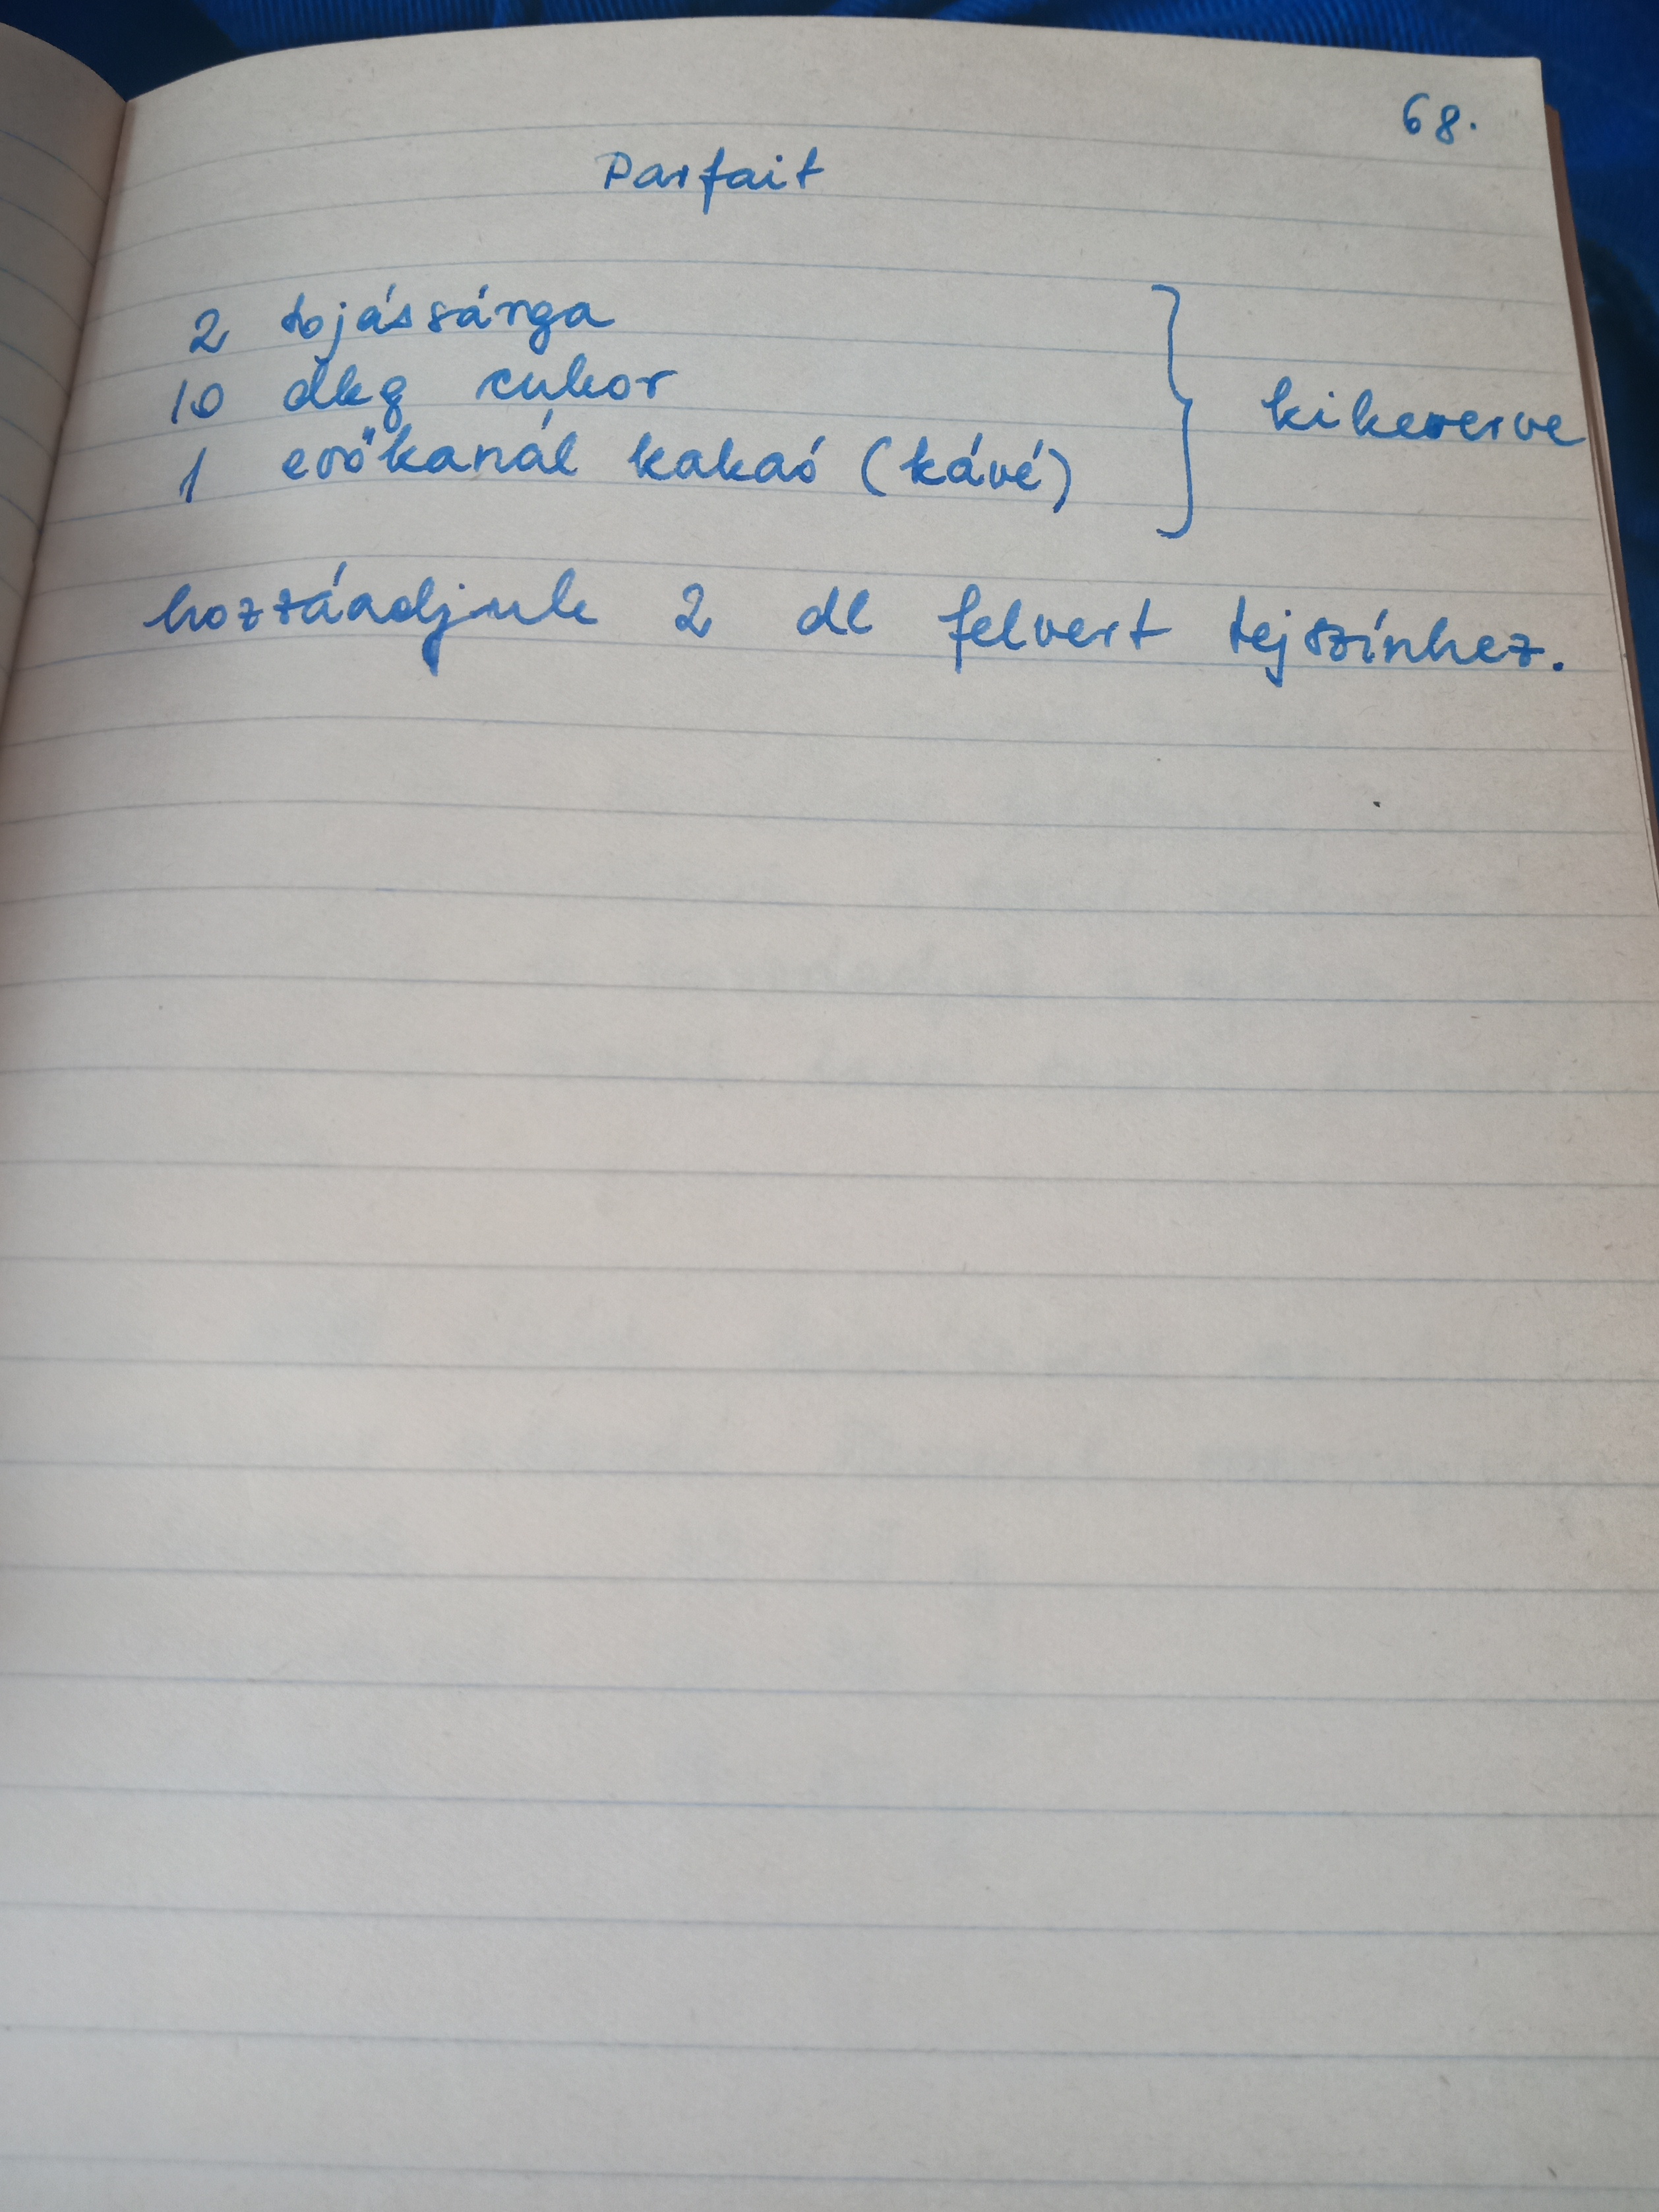 68.
Parfait
2 tojássárga
10 dkg cukor
1 evőkanál kakaó (kávé)
} kikeverve
hozzáadjuk 2 dl felvert tejszínhez.